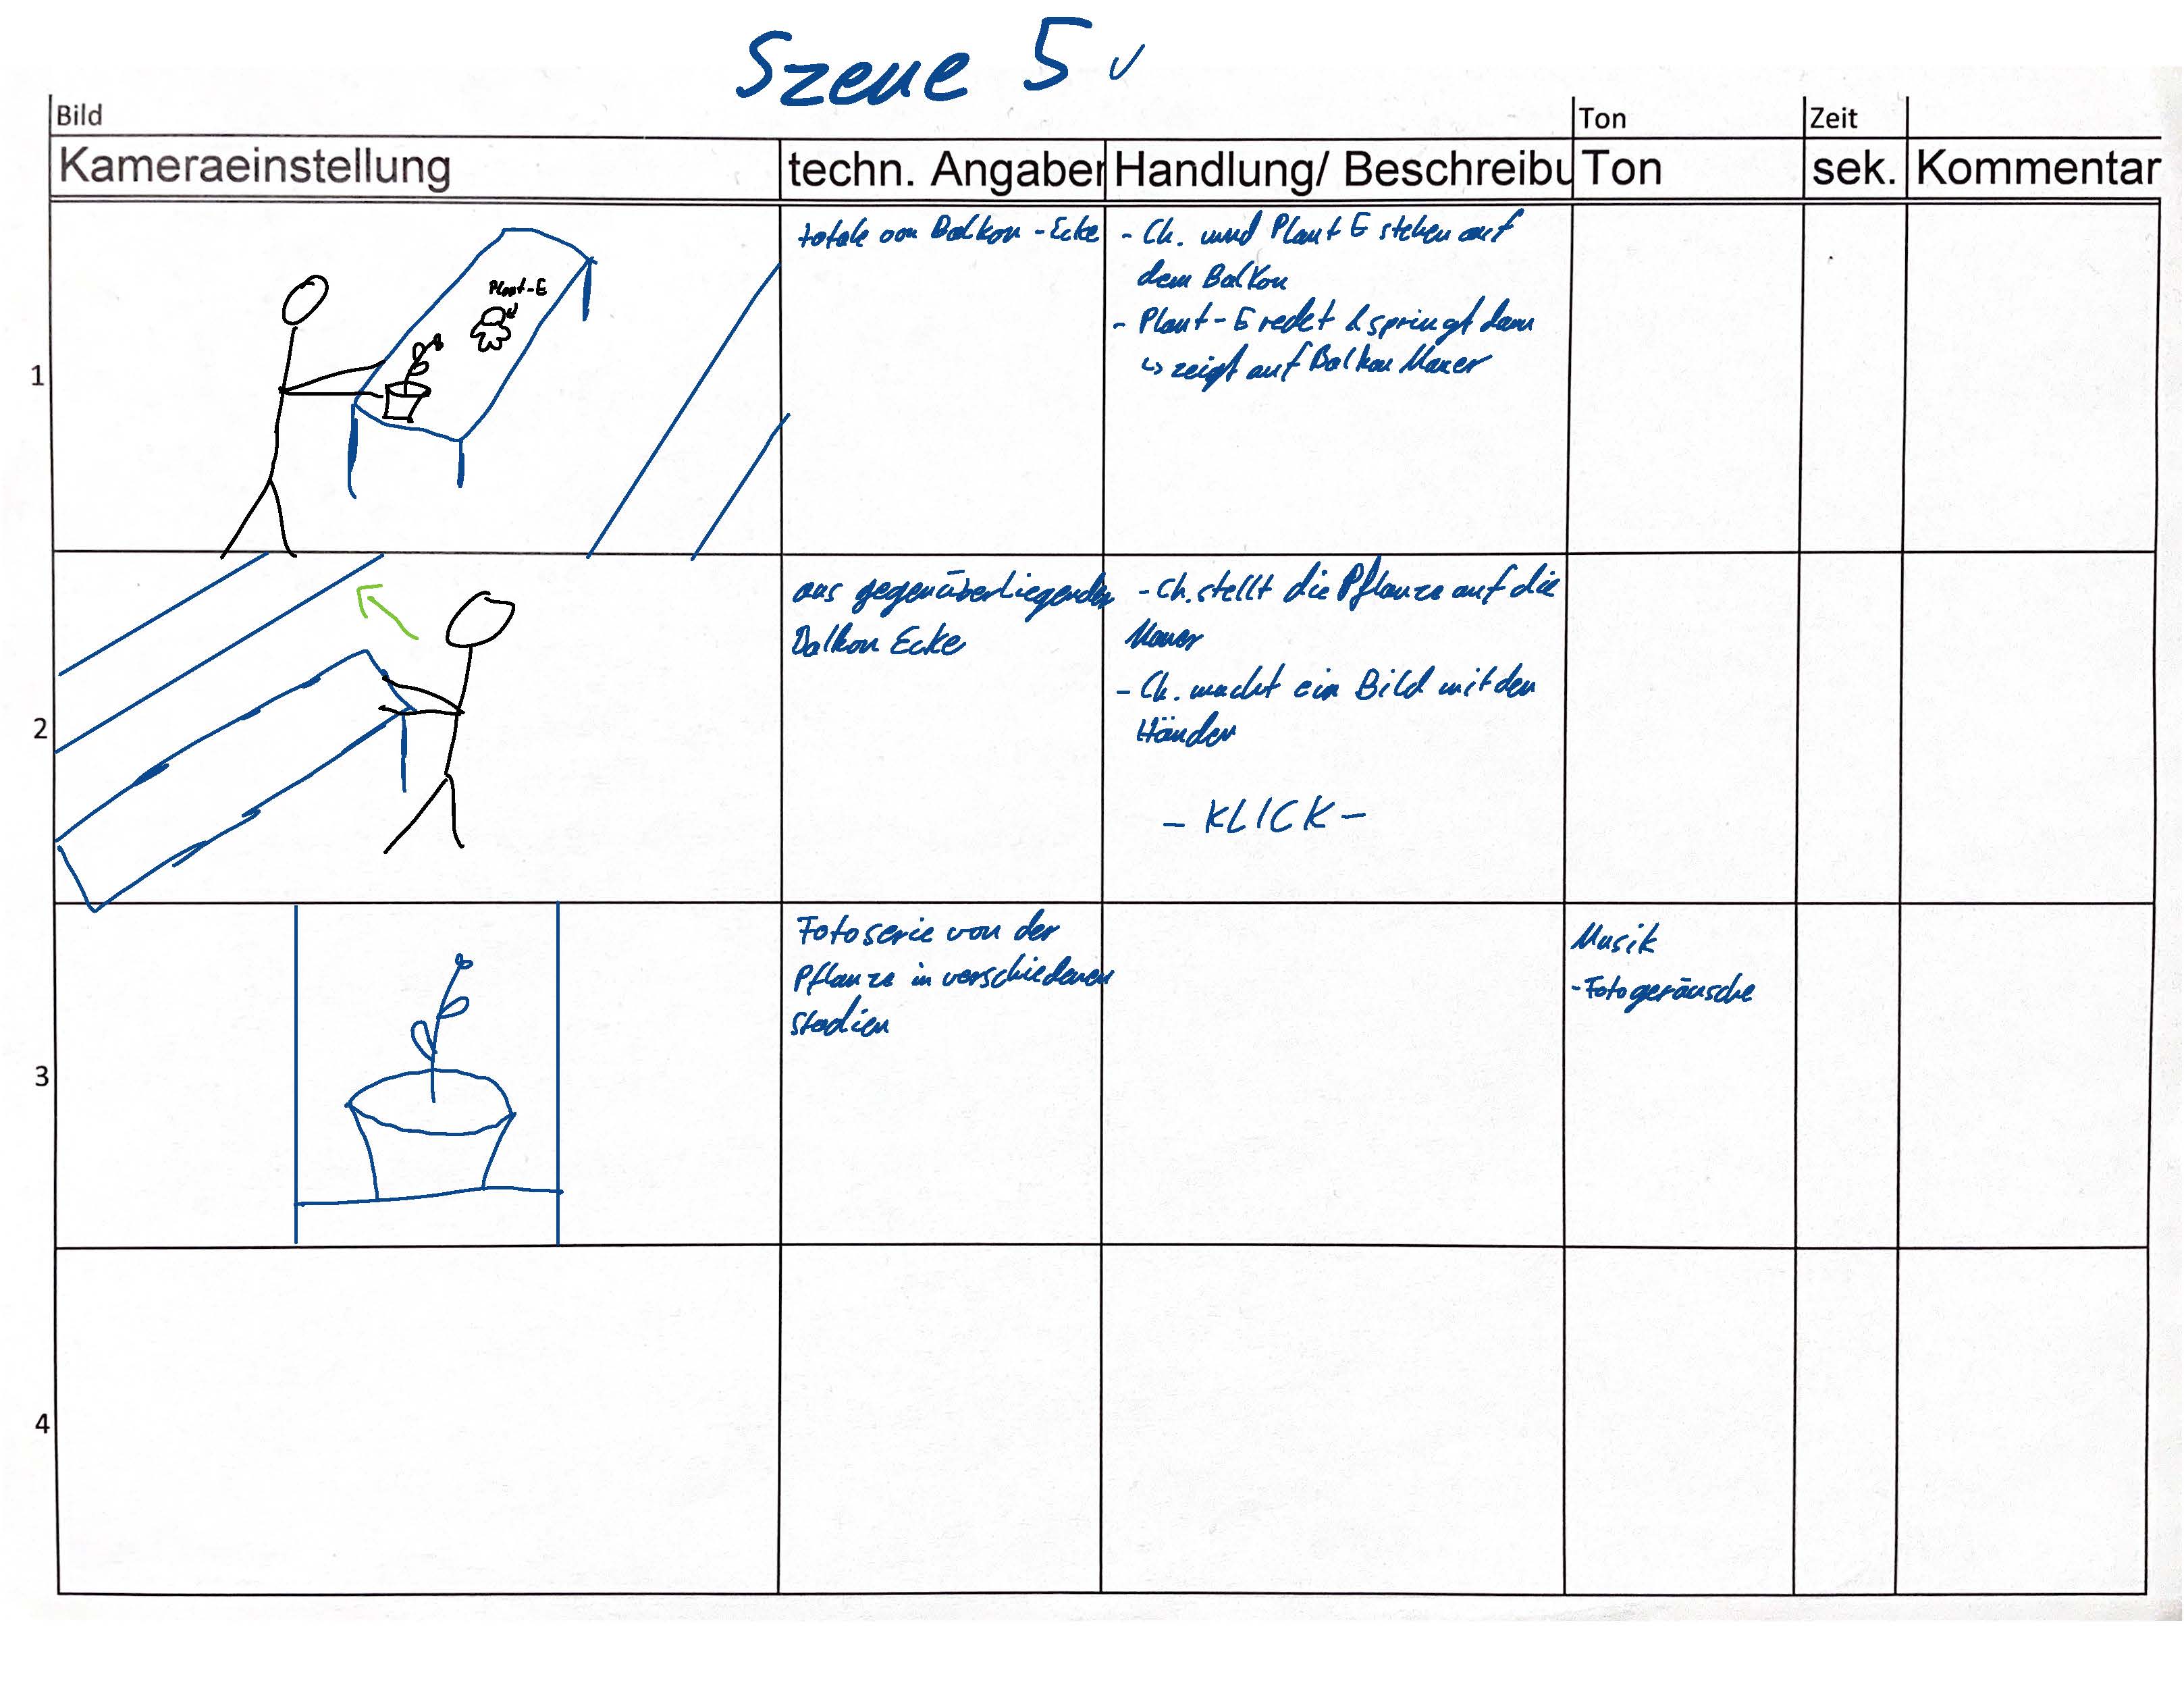 Szene 5 ✓
Bild Ton Zeit
Kameraeinstellung techn. Angaben Handlung/ Beschreibu Ton sek. Kommentar
1
Plant-E
totale von Balkon-Ecke
- Ch. und Plant E stehen auf
dem Balkon
- Plant-E redet & springt dann
↳ zeigt auf Balkon Mauer
2
aus gegenüberliegender
Balkon Ecke
- Ch. stellt die Pflanze auf die
Mauer
- Ch. macht ein Bild mit den
Händen
- KLICK -
3
Fotoserie von der
Pflanze in verschiedenen
Stadien
Musik
- Fotogeräusche
4